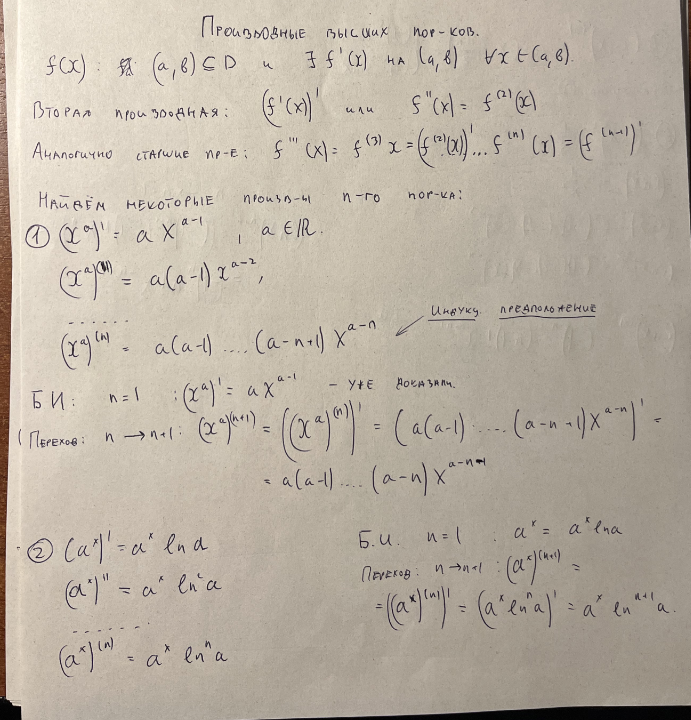 Производные высших пор-ков.
f(x): (a,b) ⊆ D и ∃ f'(x) на (a,b) ∀x ∈ (a,b).
Вторая производная: (f'(x))' или f''(x) = f⁽²⁾(x)
Аналогично старшие пр-е: f'''(x) = f⁽³⁾x = (f⁽²⁾(x))' ... f⁽ⁿ⁾(x) = (f⁽ⁿ⁻¹⁾)'
Найдём некоторые произв-ы n-го пор-ка:
① (xᵃ)' = a xᵃ⁻¹, a ∈ ℝ.
(xᵃ)'' = a(a-1) xᵃ⁻²,
.......
Индукц. предположение
(xᵃ)⁽ⁿ⁾ = a(a-1) .... (a-n+1) xᵃ⁻ⁿ
БИ: n=1 : (xᵃ)' = a xᵃ⁻¹ - уже доказали.
(Переход: n → n+1: (xᵃ)⁽ⁿ⁺¹⁾ = ((xᵃ)⁽ⁿ⁾)' = (a(a-1) ..... (a-n+1) xᵃ⁻ⁿ)' =
= a(a-1) .... (a-n) xᵃ⁻ⁿ⁻¹
② (aˣ)' = aˣ ln a
(aˣ)'' = aˣ ln²a
.......
(aˣ)⁽ⁿ⁾ = aˣ lnⁿa
Б.И. n=1 : aˣ = aˣ ln a
Переход: n→n+1 : (aˣ)⁽ⁿ⁺¹⁾ =
= ((aˣ)⁽ⁿ⁾)' = (aˣ lnⁿa)' = aˣ lnⁿ⁺¹a.